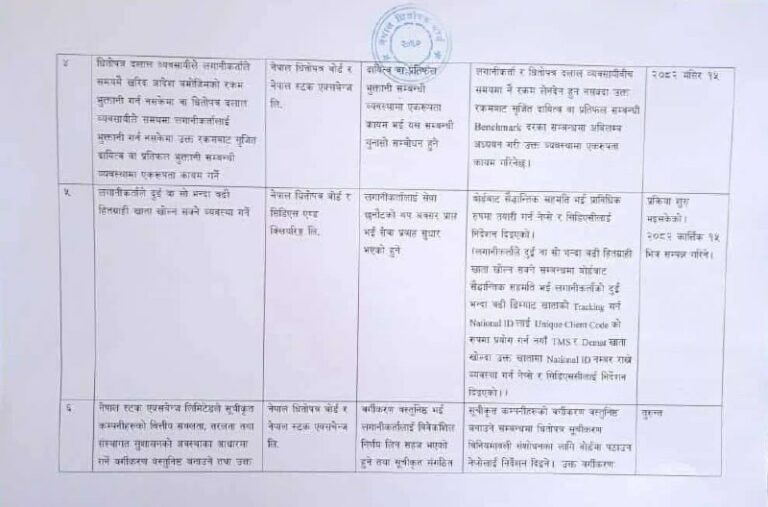 नेपाल धितोपत्र बोर्ड
२०५०
४
धितोपत्र दलाल व्यवसायीले लगानीकर्ताले
समयमै खरिद आदेश बमोजिमको रकम
भुक्तानी गर्न नसकेमा वा धितोपत्र दलाल
व्यवसायीले समयमा लगानीकर्तालाई
भुक्तानी गर्न नसकेमा उक्त रकमबाट सृजित
दायित्व वा प्रतिफल भुक्तानी सम्बन्धी
व्यवस्थामा एकरूपता कायम गर्ने
नेपाल धितोपत्र बोर्ड र
नेपाल स्टक एक्सचेन्ज
लि.
दायित्व वा प्रतिफल
भुक्तानी सम्बन्धी
व्यवस्थामा एकरूपता
कायम भई यस सम्बन्धी
गुनासो सम्बोधन हुने
लगानीकर्ता र धितोपत्र दलाल व्यवसायीबीच
समयमा नै रकम लेनदेन हुन नसक्दा उक्त
रकमबाट सृजित दायित्व वा प्रतिफल सम्बन्धी
Benchmark दरका सम्बन्धमा अविलम्ब
अध्ययन गरी उक्त व्यवस्थामा एकरूपता
कायम गरिनेछ।
२०८२ मंसिर १५
५
लगानीकर्ताले दुई वा सो भन्दा बढी
हितग्राही खाता खोल्न सक्ने व्यवस्था गर्ने
नेपाल धितोपत्र बोर्ड र
सिडिएस एण्ड
क्लियरिङ लि.
लगानीकर्तालाई सेवा
छनौटको थप अवसर प्राप्त
भई सेवा प्रवाह सुधार
भएको हुने
बोर्डबाट सैद्धान्तिक सहमति भई प्राविधिक
रुपमा तयारी गर्न नेप्से र सिडिएसीलाई
निर्देशन दिइएको।
(लगानीकर्ताले दुई वा सो भन्दा बढी हितग्राही
खाता खोल्न सक्ने सम्बन्धमा बोर्डबाट
सैद्धान्तिक सहमति भई लगानीकर्ताको दुई
भन्दा बढी डिम्याट खाताको Tracking गर्न
National ID लाई Unique Client Code को
रुपमा प्रयोग गर्न नयाँ TMS र Demat खाता
खोल्दा उक्त खातामा National ID नम्बर राख्ने
व्यवस्था गर्न नेप्से र सिडिएससीलाई निर्देशन
दिइएको।)
प्रक्रिया शुरु
भइसकेको।
२०८२ कार्तिक १५
भित्र सम्पन्न गरिने।
६
नेपाल स्टक एक्सचेन्ज लिमिटेडले सूचीकृत
कम्पनीहरुको वित्तीय सबलता, तरलता तथा
संस्थागत सुशासनको अवस्थाका आधारमा
गर्ने वर्गीकरण वस्तुनिष्ठ बनाउने तथा उक्त
नेपाल धितोपत्र बोर्ड र
नेपाल स्टक एक्सचेन्ज
लि.
वर्गीकरण वस्तुनिष्ठ भई
लगानीकर्तालाई विवेकशिल
निर्णय लिन सहज भएको
हुने तथा सूचीकृत संगठित
सूचीकृत कम्पनीहरुको वर्गीकरण वस्तुनिष्ठ
बनाउने सम्बन्धमा धितोपत्र सूचीकरण
विनियमावली संशोधनका लागि बोर्डमा पठाउन
नेप्सेलाई निर्देशन दिइने। उक्त वर्गीकरण
तुरुन्त